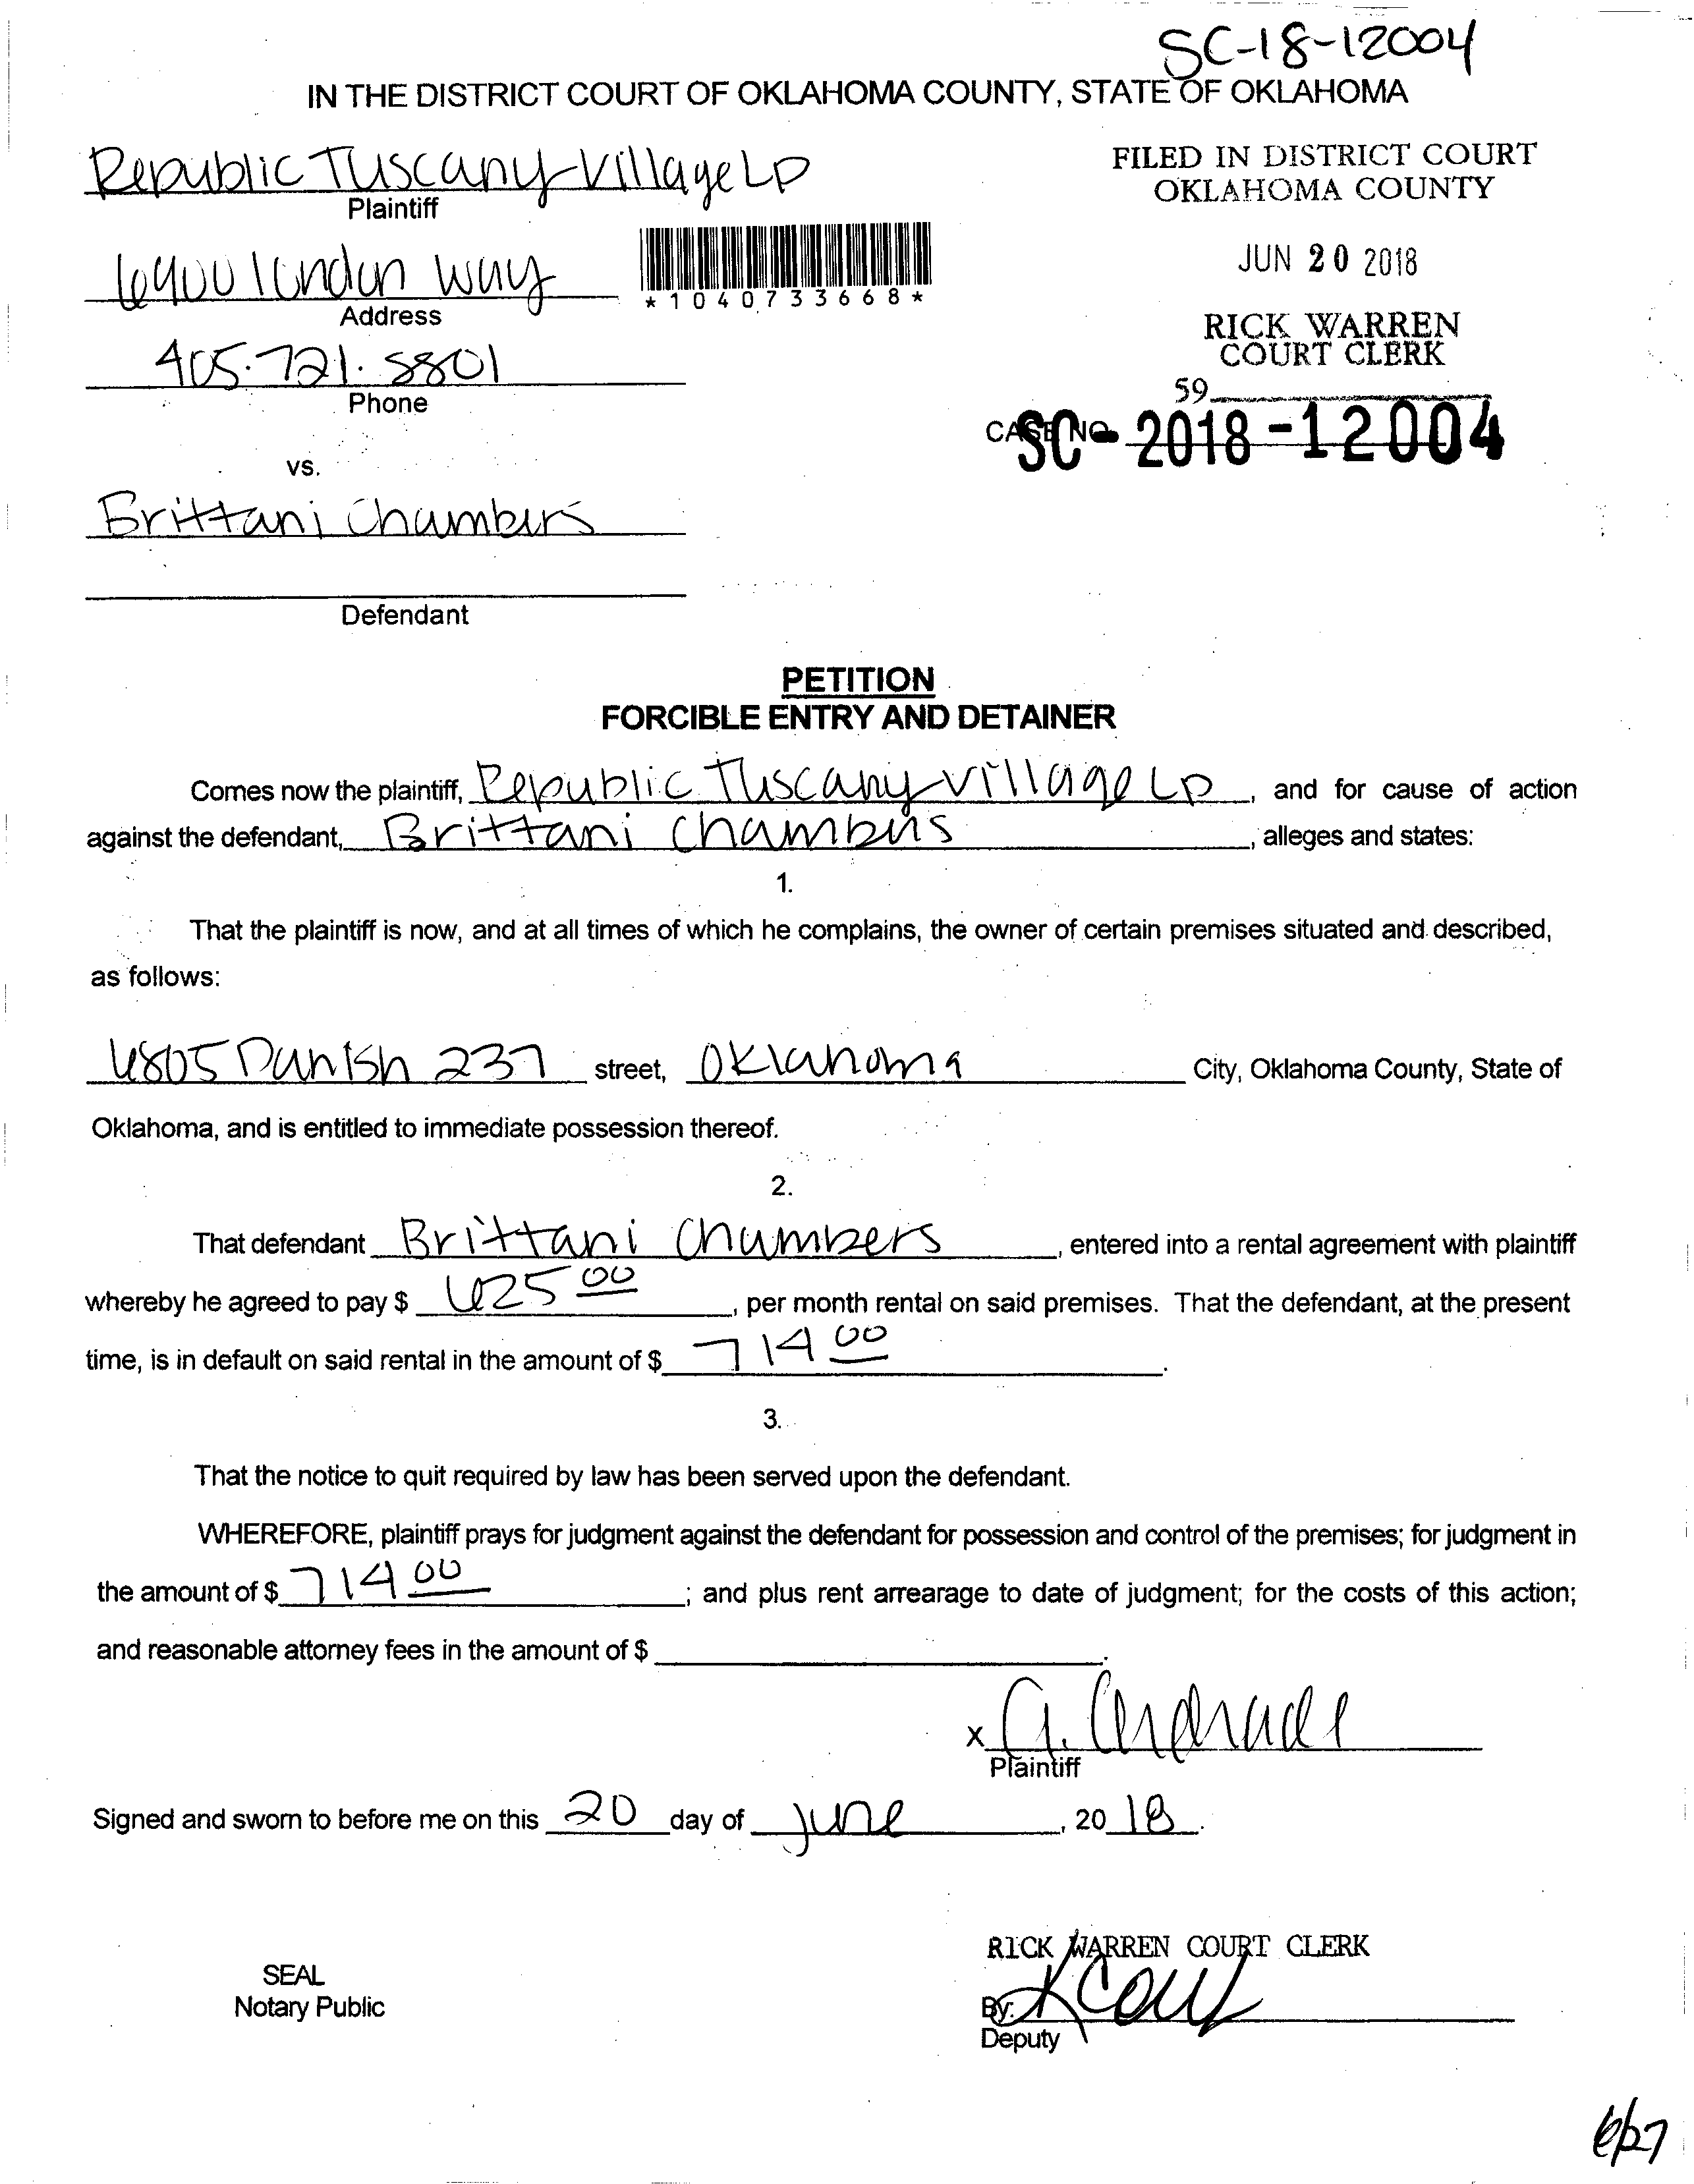 SC-18-12004
IN THE DISTRICT COURT OF OKLAHOMA COUNTY, STATE OF OKLAHOMA
Republic Tuscany Village LP
Plaintiff
FILED IN DISTRICT COURT
OKLAHOMA COUNTY
JUN 20 2018
RICK WARREN
COURT CLERK
59
6900 london way
Address
*1040733668*
405.721.5801
Phone
CASE NO.
SC-2018-12004
vs.
Brittani Chambers
Defendant
PETITION
FORCIBLE ENTRY AND DETAINER
Comes now the plaintiff, Republic Tuscany Village LP, and for cause of action
against the defendant, Brittani Chambers, alleges and states:
1.
That the plaintiff is now, and at all times of which he complains, the owner of certain premises situated and described,
as follows:
6805 Danish 237 street, Oklahoma City, Oklahoma County, State of
Oklahoma, and is entitled to immediate possession thereof.
2.
That defendant Brittani Chambers, entered into a rental agreement with plaintiff
whereby he agreed to pay $ 625 00, per month rental on said premises. That the defendant, at the present
time, is in default on said rental in the amount of $ 714 00.
3.
That the notice to quit required by law has been served upon the defendant.
WHEREFORE, plaintiff prays for judgment against the defendant for possession and control of the premises; for judgment in
the amount of $ 714 00; and plus rent arrearage to date of judgment; for the costs of this action;
and reasonable attorney fees in the amount of $.
x A. Andrade
Plaintiff
Signed and sworn to before me on this 20 day of June, 2018.
RICK WARREN COURT CLERK
SEAL
Notary Public
By:
Deputy
6/27